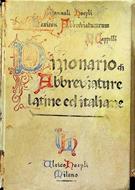 Manuali Hoepli
Lexicon Abbreviaturarum
Cappelli
Dizionario di
Abbreviature
latine ed italiane
Ulrico Hoepli
Milano